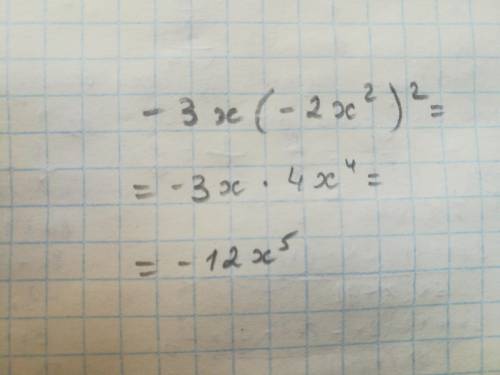 - 3x(-2x²)² =
= -3x · 4x⁴ =
= -12x⁵